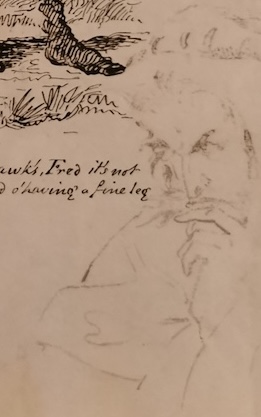 awk's, Fred it's not
d o'having a fine leg